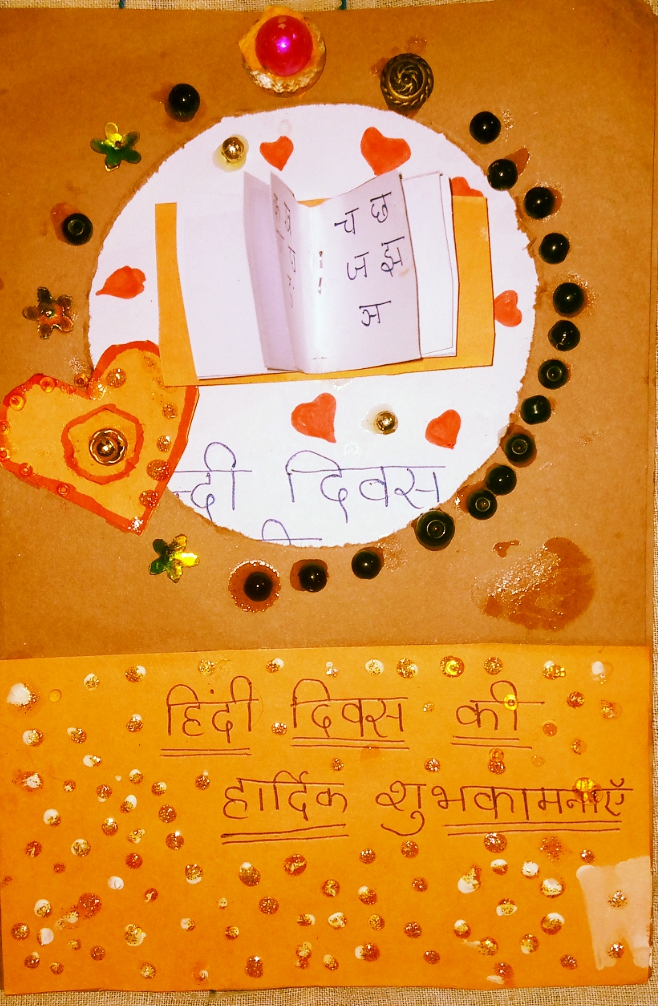 च छ
ज झ
ञ
दिवस
हिंदी दिवस की
हार्दिक शुभकामनाएँ